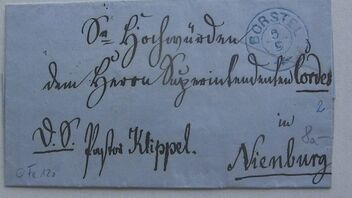 Sr Hochwürden
BORSTEL
5
9
dem Herrn Superintendenten Cordes
2
in
8a-
D. S. Pastor Klippel.
Nienburg